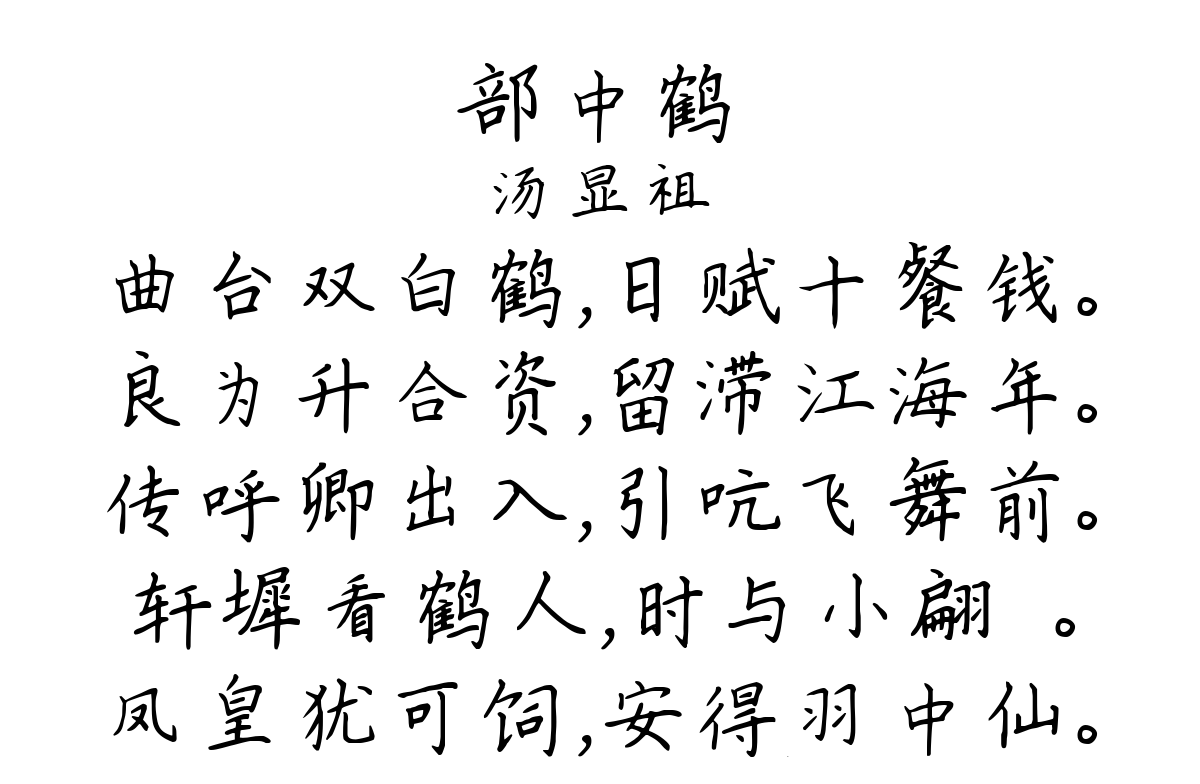 部中鹤
汤显祖
曲台双白鹤,日赋十餐钱。
良为升合资,留滞江海年。
传呼卿出入,引吭飞舞前。
轩墀看鹤人,时与小翩 。
凤皇犹可饲,安得羽中仙。